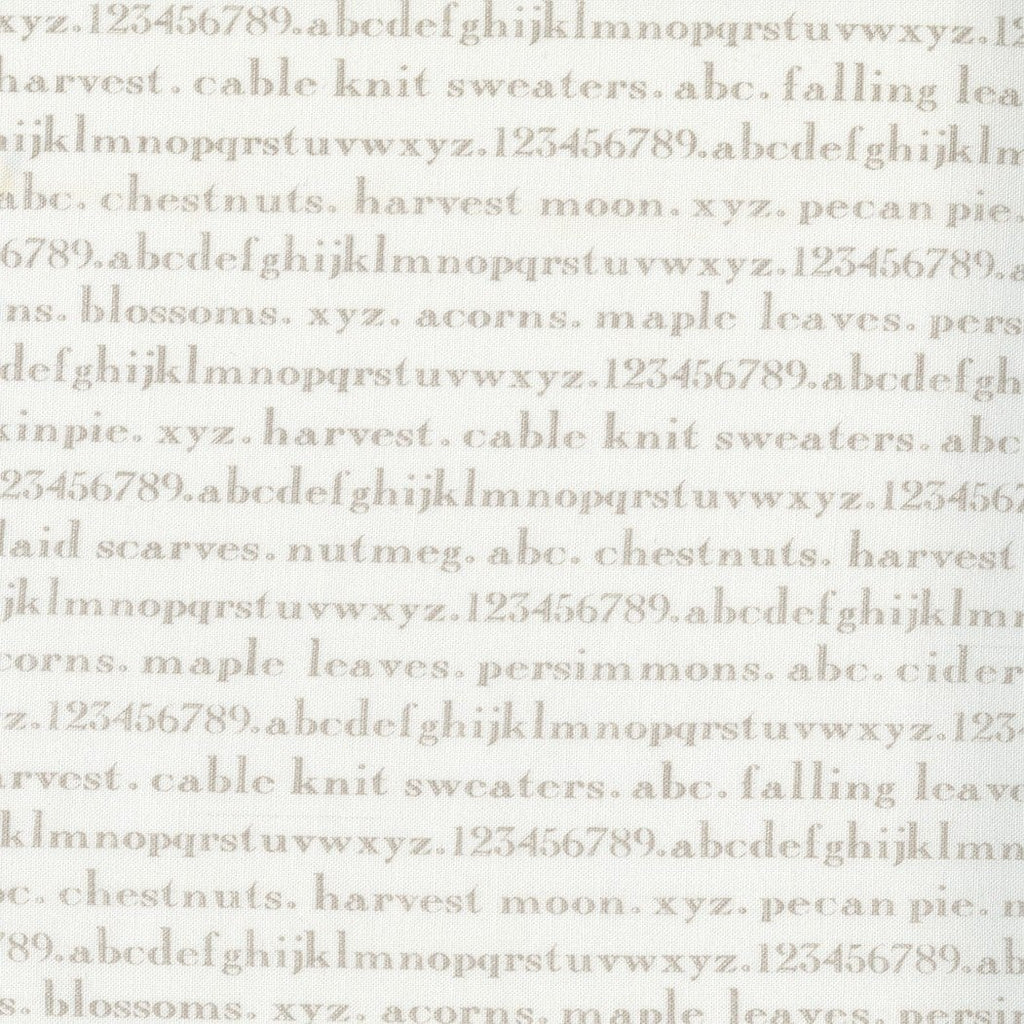 xyz.123456789.abcdefghijklmnopqrstuvwxyz.12
harvest. cable knit sweaters. abc. falling lea
hijklmnopqrstuvwxyz.123456789.abcdefghijklm
abc. chestnuts. harvest moon. xyz. pecan pie.
6789.abcdefghijklmnopqrstuvwxyz.123456789.a
ns. blossoms. xyz. acorns. maple leaves. pers
defghijklmnopqrstuvwxyz.123456789.abcdefgh
kinpie. xyz. harvest. cable knit sweaters. abc
123456789.abcdefghijklmnopqrstuvwxyz.1234567
laid scarves. nutmeg. abc. chestnuts. harvest
ijklmnopqrstuvwxyz.123456789.abcdefghijklmn
corns. maple leaves. persimmons. abc. cider
yz.123456789.abcdefghijklmnopqrstuvwxyz.1234
arvest. cable knit sweaters. abc. falling leave
klmnopqrstuvwxyz.123456789.abcdefghijklmn
bc. chestnuts. harvest moon. xyz. pecan pie. n
789.abcdefghijklmnopqrstuvwxyz.123456789.ab
s. blossoms. xyz. acorns. maple leaves. persi